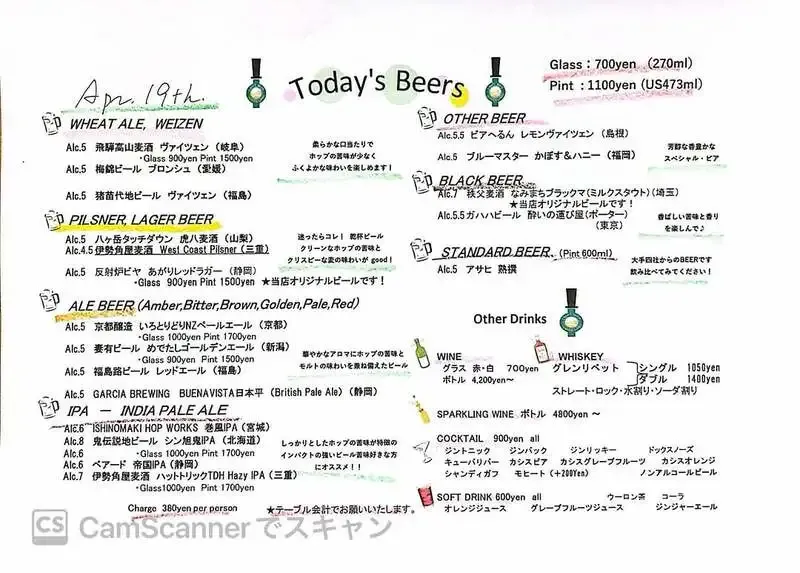 Apr. 19th.
Today's Beers
Glass：700yen （270ml）
Pint ：1100yen（US473ml）
WHEAT ALE, WEIZEN
Alc.5 飛騨高山麦酒 ヴァイツェン（岐阜）
・Glass 900yen Pint 1500yen
Alc.5 梅錦ビール ブロンシュ（愛媛）
Alc.5 猪苗代地ビール ヴァイツェン（福島）
柔らかな口当たりで
ホップの苦味が少なく
ふくよかな味わいを楽しめます！
PILSNER, LAGER BEER
Alc.5 八ヶ岳タッチダウン 虎八麦酒（山梨）
Alc.4.5 伊勢角屋麦酒 West Coast Pilsner（三重）
Alc.5 反射炉ビヤ あがりレッドラガー（静岡）
・Glass 900yen Pint 1500yen ★当店オリジナルビールです！
迷ったらコレ！ 乾杯ビール
クリーンなホップの苦味と
クリスピーな麦の味わいが good！
ALE BEER（Amber,Bitter,Brown,Golden,Pale,Red）
Alc.5 京都醸造 いろとりどりNZペールエール（京都）
・Glass 1000yen Pint 1700yen
Alc.5 妻有ビール めでたしゴールデンエール（新潟）
・Glass 900yen Pint 1500yen
Alc.5 福島路ビール レッドエール（福島）
Alc.5 GARCIA BREWING BUENAVISTA日本平（British Pale Ale）（静岡）
華やかなアロマにホップの苦味と
モルトの味わいを兼ね備えたビール
IPA － INDIA PALE ALE
Alc.6 ISHINOMAKI HOP WORKS 巻風IPA（宮城）
Alc.8 鬼伝説地ビール シン旭鬼IPA（北海道）
Alc.6 ・Glass 1000yen Pint 1700yen
Alc.6 ベアード 帝国IPA（静岡）
Alc.7 伊勢角屋麦酒 ハットトリックTDH Hazy IPA（三重）
・Glass1000yen Pint 1700yen
しっかりとしたホップの苦味が特徴の
インパクトの強いビール苦味好きな方
にオススメ！！
Charge 380yen per person
★テーブル会計でお願いいたします。
OTHER BEER
Alc.5.5 ビアへるん レモンヴァイツェン（島根）
Alc.5 ブルーマスター かぼす＆ハニー（福岡）
芳醇な香豊かな
スペシャル・ビア
BLACK BEER
Alc.7 秩父麦酒 なみまちブラックマ（ミルクスタウト）（埼玉）
★当店オリジナルビールです！
Alc.5.5 ガハハビール 酔いの運び屋（ポーター）
（東京）
香ばしい苦味と香り
を楽しんで♪
STANDARD BEER （Pint 600ml）
Alc.5 アサヒ 熟撰
大手四社からのBEERです
飲み比べてみてください！
Other Drinks
WINE
グラス 赤・白 700yen
ボトル 4,200yen～
WHISKEY
グレンリベット シングル 1050yen
ダブル 1400yen
ストレート・ロック・水割り・ソーダ割り
SPARKLING WINE ボトル 4800yen ～
COCKTAIL 900yen all
ジントニック ジンバック ジンリッキー ドックスノーズ
キューバリバー カシスビア カシスグレープフルーツ カシスオレンジ
シャンディガフ モヒート（＋200Yen） ノンアルコールビール
SOFT DRINK 600yen all ウーロン茶 コーラ
オレンジジュース グレープフルーツジュース ジンジャーエール
CS CamScannerでスキャン